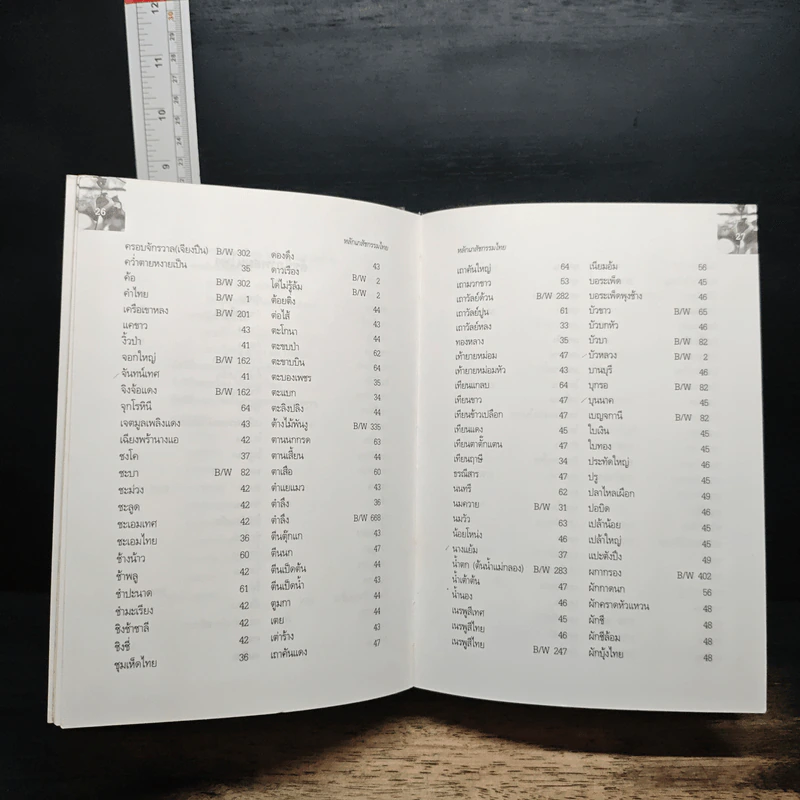 12
11
10
9
26
หลักเภสัชกรรมไทย
ครอบจักรวาล(เจียงปิน) B/W 302
คว่ำตายหงายเป็น 35
ค้อ B/W 302
คำไทย B/W 1
เครือเขาหลง B/W 201
แคขาว 43
งิ้วป่า 41
จอกใหญ่ B/W 162
จันทน์เทศ 41
จิงจ้อแดง B/W 162
จุกโรหินี 64
เจตมูลเพลิงแดง 43
เฉียงพร้านางแอ 42
ชงโค 37
ชะบา B/W 82
ชะม่วง 42
ชะลูด 42
ชะเอมเทศ 42
ชะเอมไทย 36
ช้างน้าว 60
ช้าพลู 42
ชำปะนาด 61
ชำมะเรียง 42
ชิงช้าชาลี 42
ชิงชี่ 42
ชุมเห็ดไทย 36
ดองดึง 43
ดาวเรือง B/W 2
โด่ไม่รู้ล้ม B/W 2
ต้อยติ่ง 44
ต่อไส้ 44
ตะโกนา 44
ตะขบป่า 62
ตะขาบบิน 64
ตะบองเพชร 35
ตะแบก 34
ตะลิงปลิง 44
ต้างไม้พันงู B/W 335
ตานนกกรด 63
ตานเสี้ยน 44
ตาเสือ 60
ตำแยแมว 43
ตำลึง 36
ตำลึง B/W 668
ตีนตุ๊กแก 43
ตีนนก 47
ตีนเป็ดต้น 44
ตีนเป็ดน้ำ 43
ตูมกา 44
เตย 44
เต่าร้าง 43
เถาคันแดง 47
27
หลักเภสัชกรรมไทย
เถาคันใหญ่ 64
เถามวกขาว 53
เถาวัลย์ด้วน B/W 282
เถาวัลย์ปูน 61
เถาวัลย์หลง 33
ทองหลาง 35
เท้ายายหม่อม 47
เท้ายายหม่อมหัว 43
เทียนแกลบ 64
เทียนขาว 47
เทียนข้าวเปลือก 47
เทียนแดง 45
เทียนตาตั๊กแตน 47
เทียนฤาษี 34
ธรณีสาร 47
นนทรี 62
นมควาย B/W 31
นมวัว 63
น้อยโหน่ง 46
นางแย้ม 37
น้ำตก (ต้นน้ำแม่กลอง) B/W 283
น้ำเต้าต้น 47
น้ำนอง 46
เนรพูสีเทศ 45
เนรพูสีไทย 46
เนรพูสีไทย B/W 247
เนียมอ้ม 56
บอระเพ็ด 45
บอระเพ็ดพุงช้าง 46
บัวขาว B/W 65
บัวบกหัว 46
บัวบา B/W 82
บัวหลวง B/W 2
บานบุรี 46
บุกรอ B/W 82
บุนนาค 45
เบญจกานี B/W 82
ใบเงิน 45
ใบทอง 45
ประทัดใหญ่ 46
ปรู 45
ปลาไหลเผือก 49
ปอบิด 46
เปล้าน้อย 45
เปล้าใหญ่ 45
แปะตังปึง 49
ผกากรอง B/W 402
ผักกาดนก 56
ผักคราดหัวแหวน 48
ผักชี 48
ผักชีล้อม 48
ผักบุ้งไทย 48